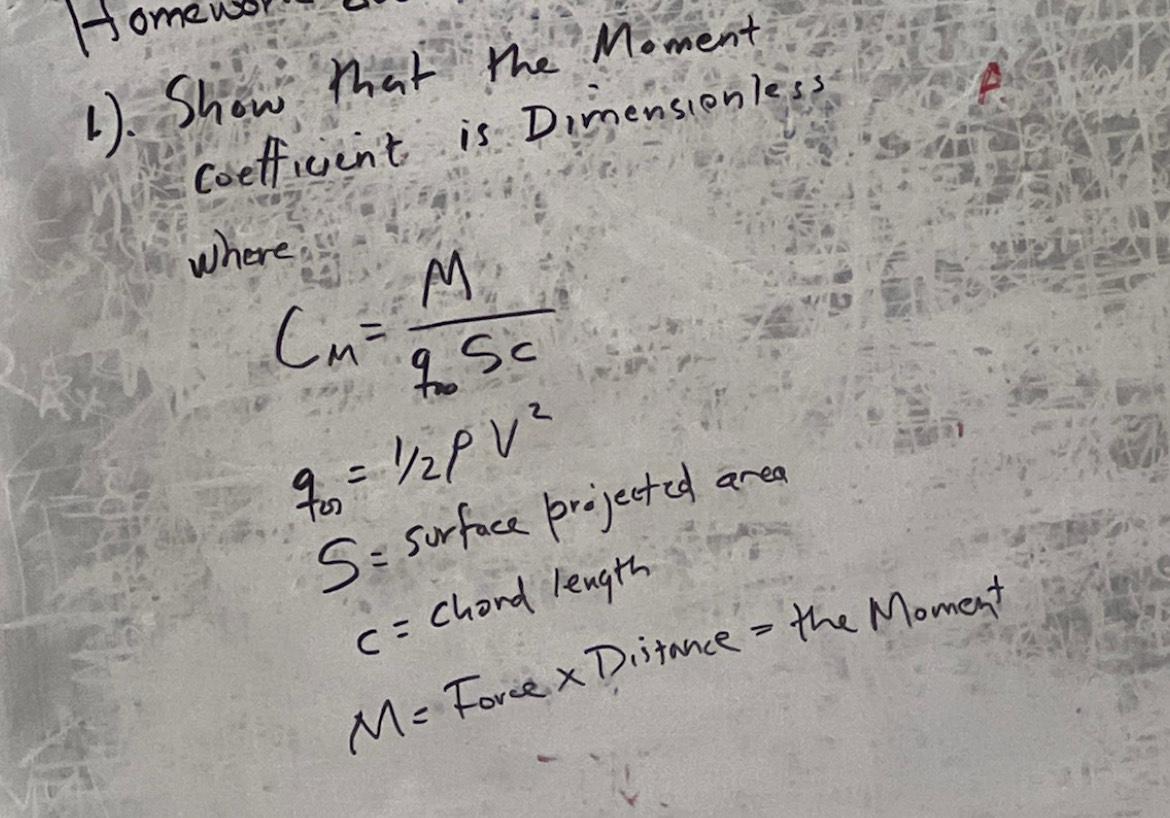 Homework
1). Show that the Moment
coefficient is Dimensionless
A
where
C_M = M / q_∞ S c
q_∞ = 1/2 ρ V²
S = surface projected area
c = chord length
M = Force × Distance = the Moment